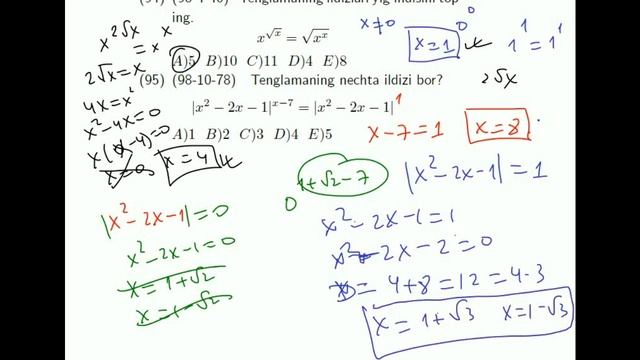 (94) (98-7-46) Tenglamaning ildizlari yig'indisini top-
ing.
x^{√x} = √(x^x)
A)5 B)10 C)11 D)4 E)8
(95) (98-10-78) Tenglamaning nechta ildizi bor?
|x² − 2x − 1|^{x−7} = |x² − 2x − 1|^1
A)1 B)2 C)3 D)4 E)5
x^{2√x} = x^x
2√x = x
4x = x²
x² − 4x = 0
x(x − 4) = 0
x = 0 x = 4
x ≠ 0
0^0
x = 1
1^1 = 1^1
2√x
x − 7 = 1 x = 8
0^{1+√2−7}
|x² − 2x − 1| = 0
x² − 2x − 1 = 0
x = 1 + √2
x = 1 − √2
|x² − 2x − 1| = 1
x² − 2x − 1 = 1
x² − 2x − 2 = 0
D = 4 + 8 = 12 = 4·3
x = 1 + √3 x = 1 − √3